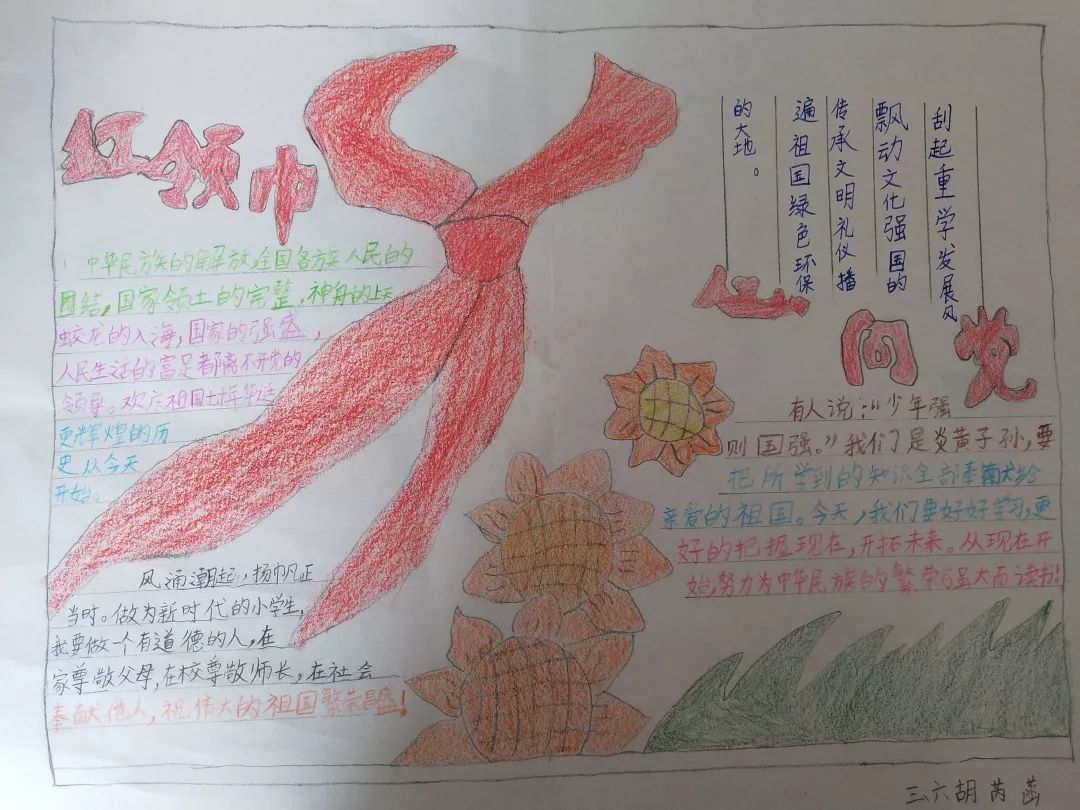 红领巾
中华民族的解放,全国各族人民的
团结,国家领土的完整,神舟的上天
蛟龙的入海,国家的强盛,
人民生活的富足都离不开党的
领导。欢庆祖国七十年华诞
更辉煌的历
史从今天
开始。
风涌潮起,扬帆正
当时。做为新时代的小学生,
我要做一个有道德的人,在
家尊敬父母,在校尊敬师长,在社会
奉献他人,祝伟大的祖国繁荣昌盛!
刮起重学发展风
飘动文化强国的
传承文明礼仪播
遍祖国绿色环保
的大地。
心向党
有人说:“少年强
则国强。”我们是炎黄子孙,要
把所学到的知识全部奉献给
亲爱的祖国。今天,我们要好好学习,更
好的把握现在,开拓未来。从现在开
始,努力为中华民族的繁荣与强大而读书!
三六胡芮菡